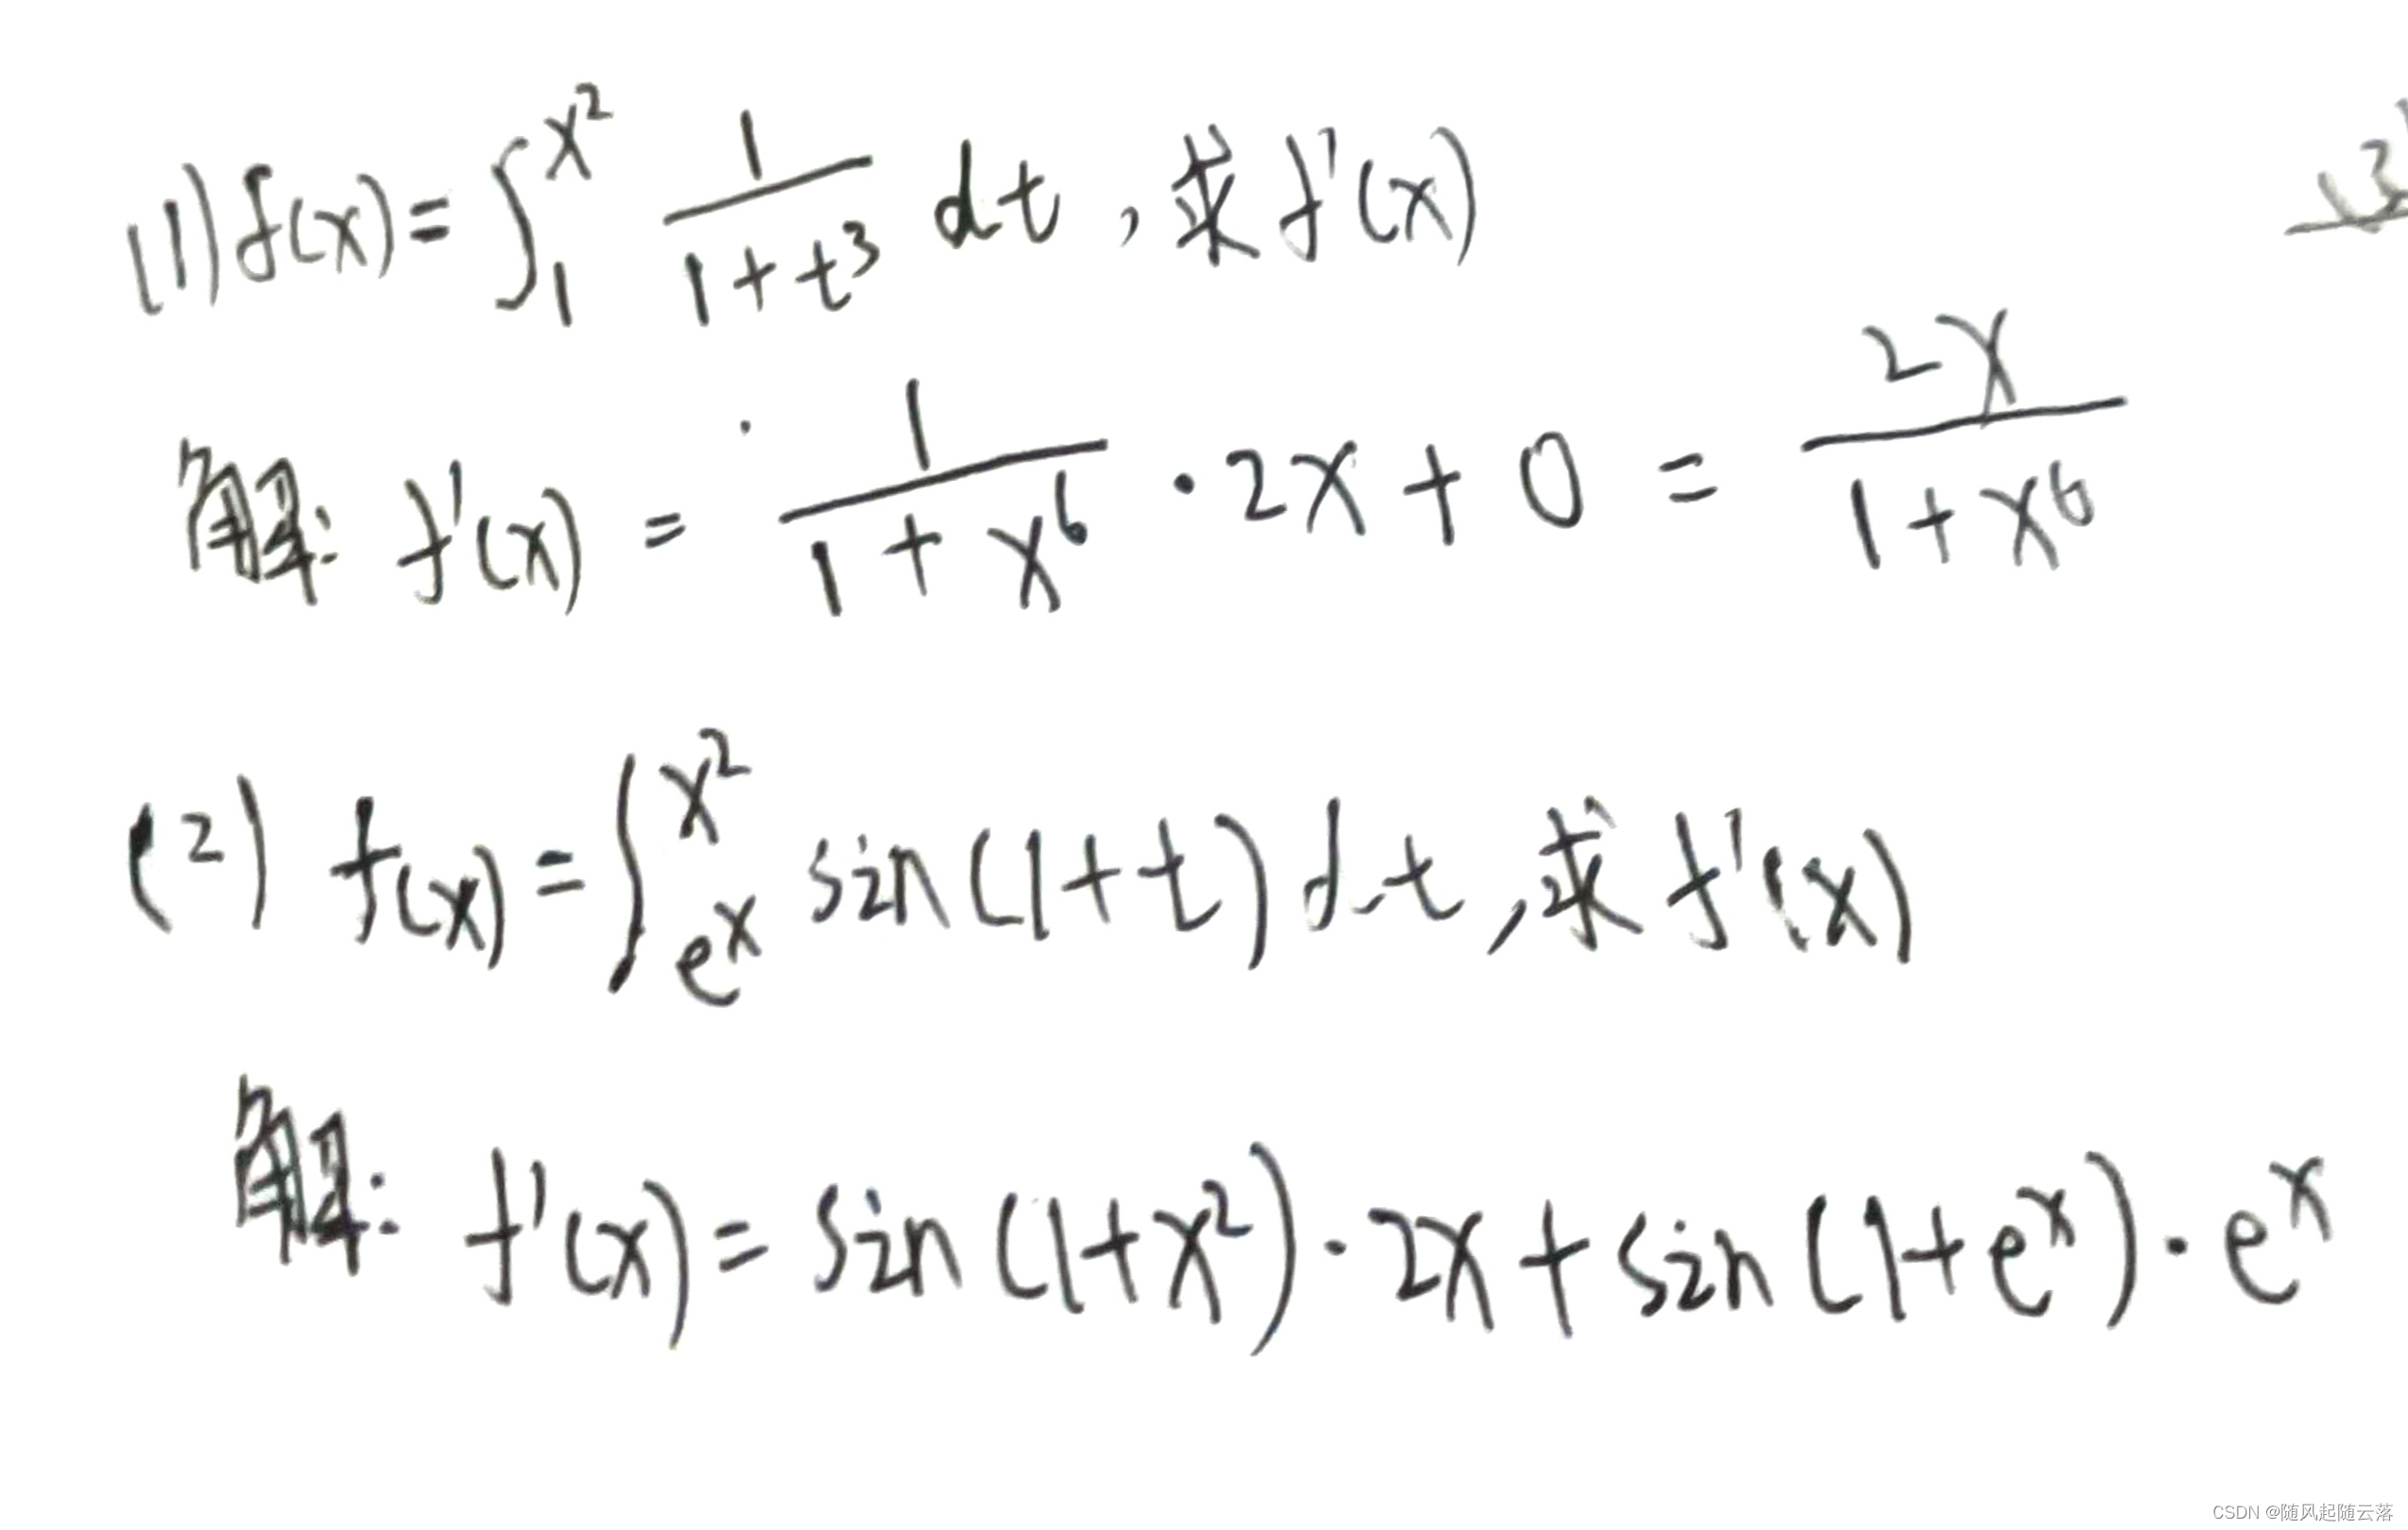 (1) f(x) = ∫₁^{x²} 1/(1+t³) dt , 求 f'(x)
解: f'(x) = 1/(1+x⁶) · 2x + 0 = 2x/(1+x⁶)
(2) f(x) = ∫_{eˣ}^{x²} sin(1+t) dt , 求 f'(x)
解: f'(x) = sin(1+x²) · 2x + sin(1+eˣ) · eˣ
CSDN @随风起随云落